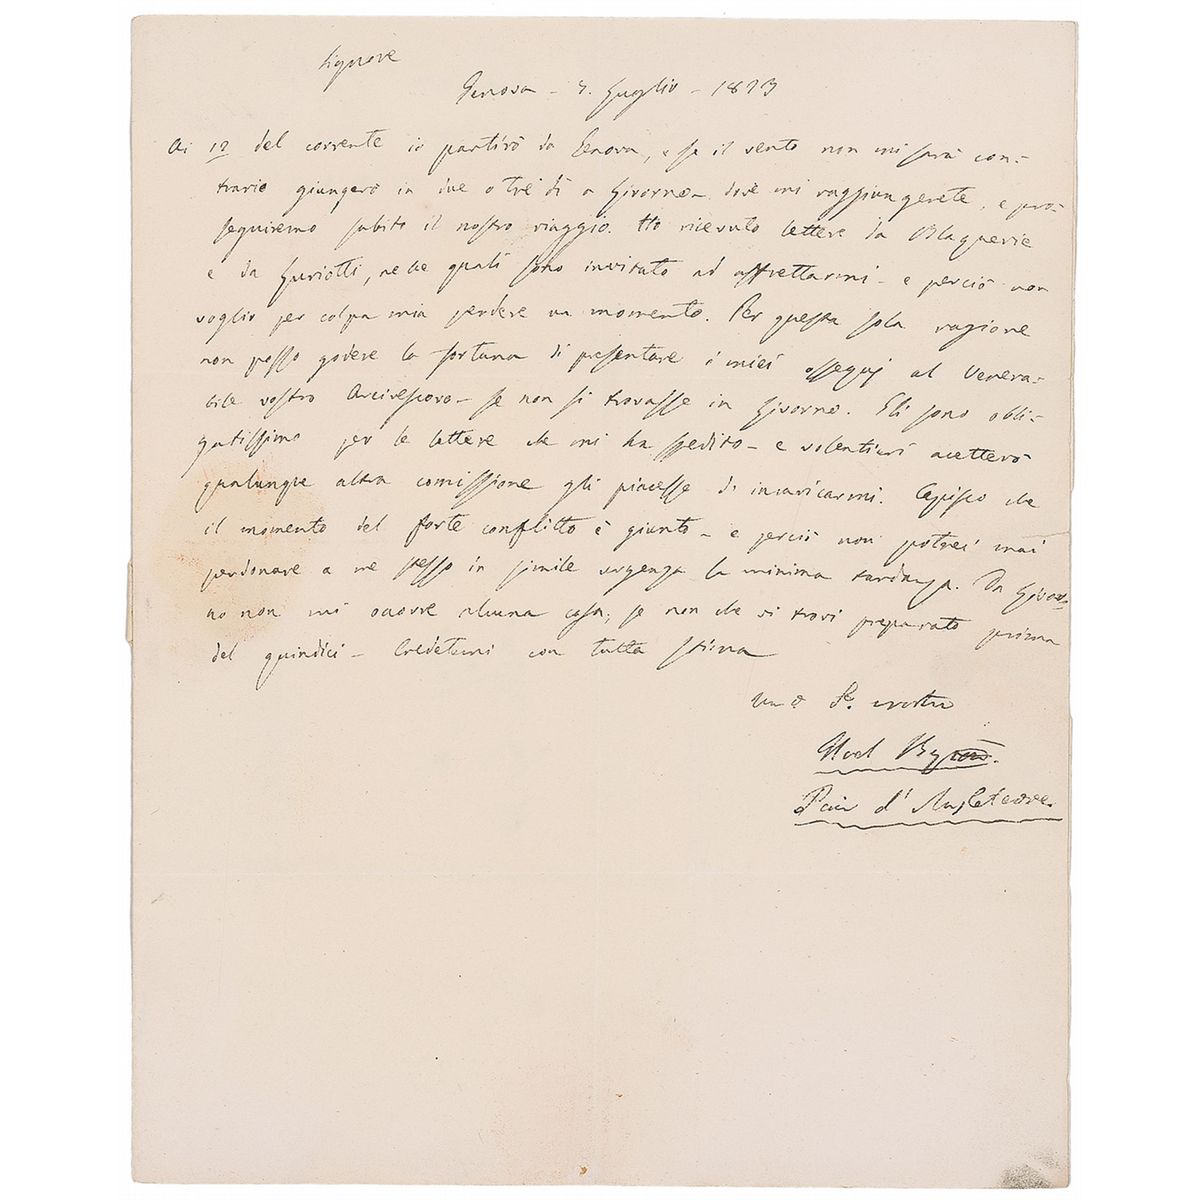 Signore
Genova - 5. Luglio - 1823
Ai 12 del corrente io partirò da Genova, e se il vento non mi sarà con-
trario giungerò in due o tre dì a Livorno - dove mi raggiungerete, e pro-
seguiremo subito il nostro viaggio. Ho ricevuto lettere da Blaquerie
e da Luriotti, nelle quali sono invitato ad affrettarmi - e perciò non
voglio per colpa mia perdere un momento. Per questa sola ragione
non posso godere la fortuna di presentare i miei ossequj al Venera-
bile vostro Arcivescovo - se non si trovasse in Livorno. Gli sono obbli-
gatissimo per le lettere che mi ha spedito - e volentieri accetterò
qualunque altra comissione gli piacesse di incaricarmi. Capisco che
il momento del forte conflitto è giunto - e perciò non potrei mai
perdonare a me stesso in simile urgenza la minima tardanza. Da Livor-
no non mi occorre alcuna cosa; se non che vi trovi preparato prima
del quindici - Credetemi con tutta stima
S. vostro
Noel Byron.
Pair d'Angleterre.